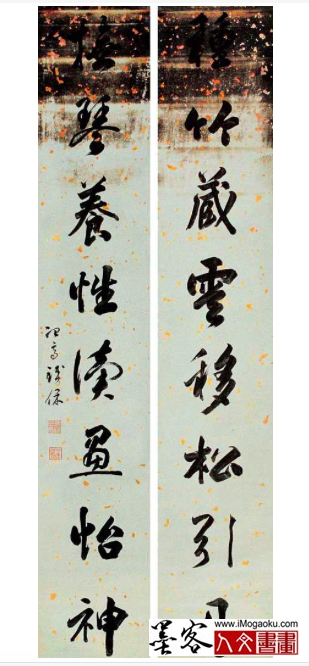 種竹藏雲移松引
琴養性讀畫怡神
冶亭鐵保
墨客
www.iMogaoku.com
人文書畫